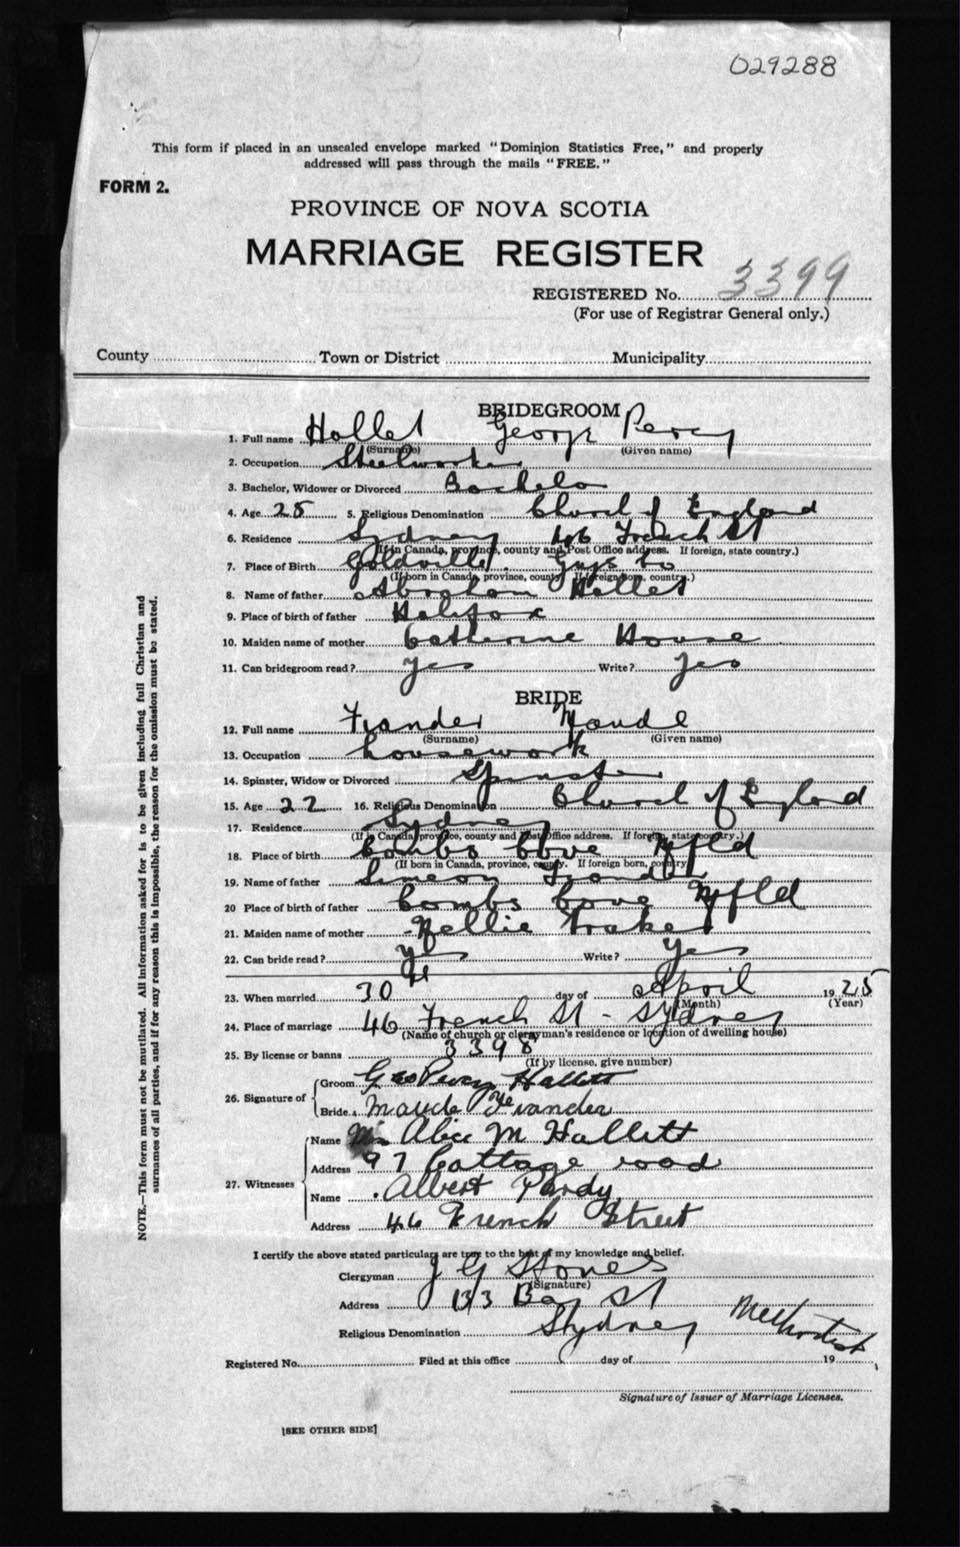 029288
This form if placed in an unsealed envelope marked "Dominion Statistics Free," and properly
addressed will pass through the mails "FREE."
FORM 2.
PROVINCE OF NOVA SCOTIA
MARRIAGE REGISTER
REGISTERED No. 3399
(For use of Registrar General only.)
County Town or District Municipality
BRIDEGROOM
1. Full name Hallet George Percy
(Surname) (Given name)
2. Occupation Steelworker
3. Bachelor, Widower or Divorced Bachelor
4. Age 25 5. Religious Denomination Church of England
6. Residence Sydney 46 French St
(If in Canada, province, county and Post Office address. If foreign, state country.)
7. Place of Birth Goldville, Guys Co
(If born in Canada, province, county. If foreign born, country.)
8. Name of father Abraham Hallet
9. Place of birth of father Halifax
10. Maiden name of mother Catherine
11. Can bridegroom read? Yes Write? Yes
BRIDE
12. Full name Frander Maude
(Surname) (Given name)
13. Occupation housework
14. Spinster, Widow or Divorced Spinster
15. Age 22 16. Religious Denomination Church of England
17. Residence Sydney
(If in Canada, province, county and Post Office address. If foreign, state country.)
18. Place of birth Combs Cove Nfld
(If born in Canada, province, county. If foreign born, country
19. Name of father Simeon
20 Place of birth of father Combs Cove Nfld
21. Maiden name of mother Nellie
22. Can bride read? Yes Write? Yes
23. When married 30 day of April 1925
(Month) (Year)
24. Place of marriage 46 French St - Sydney
(Name of church or clergyman's residence or location of dwelling house)
25. By license or banns 3398
(If by license, give number)
26. Signature of
Groom Geo Percy Hallett
Bride Maude
27. Witnesses
Name Mrs Alice M Hallett
Address 97 Cottage road
Name Albert Pardy
Address 46 French Street
I certify the above stated particulars are true to the best of my knowledge and belief.
Clergyman J G Stones
(Signature)
Address 133 Bay St
Religious Denomination Sydney Methodist
Registered No. Filed at this office day of 19
Signature of Issuer of Marriage Licenses.
[SEE OTHER SIDE]
NOTE.—This form must not be mutilated. All information asked for is to be given including full Christian and
surnames of all parties, and if for any reason this is impossible, the reason for the omission must be stated.